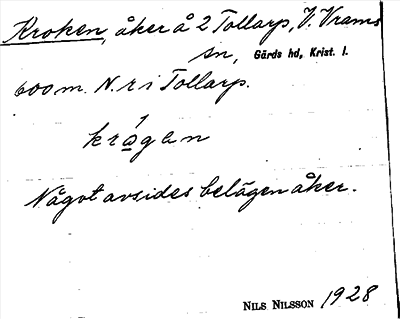 Kroken, åker å 2 Tollarp, V. Vrams
sn, Gärds hd, Krist. l.
600 m. N. r i Tollarp.
krågan
Något avsides belägen åker.
NILS NILSSON 1928